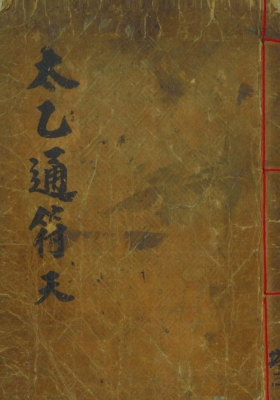 太乙通符天